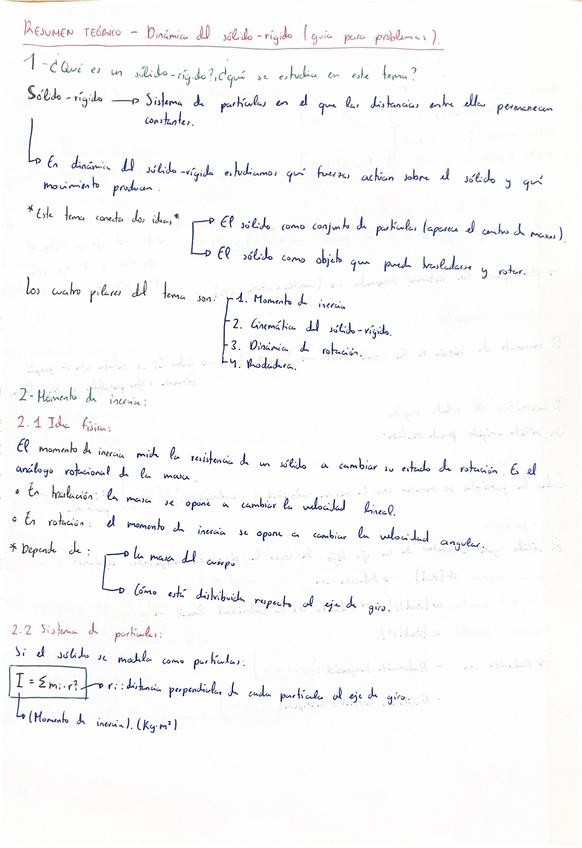 RESUMEN TEÓRICO - Dinámica del sólido-rígido (guía para problemas).
1-¿Qué es un sólido-rígido?, ¿qué se estudia en este tema?
Sólido-rígido → Sistema de partículas en el que las distancias entre ellas permanecen
constantes.
↳ En dinámica del sólido-rígido estudiamos qué fuerzas actúan sobre el sólido y qué
movimiento producen.
*Este tema conecta dos ideas*
→ El sólido como conjunto de partículas (aparece el centro de masas).
→ El sólido como objeto que puede trasladarse y rotar.
Los cuatro pilares del tema son:
1. Momento de inercia
2. Cinemática del sólido-rígido.
3. Dinámica de rotación.
4. Rodadura.
2- Momento de inercia:
2.1 Idea física:
El momento de inercia mide la resistencia de un sólido a cambiar su estado de rotación. Es el
análogo rotacional de la masa.
• En traslación: la masa se opone a cambiar la velocidad lineal.
• En rotación: el momento de inercia se opone a cambiar la velocidad angular.
* Depende de:
→ la masa del cuerpo
→ Cómo está distribuida respecto al eje de giro.
2.2 Sistema de partículas:
Si el sólido se modela como partículas:
I = Σmi·ri² → ri: distancia perpendicular de cada partícula al eje de giro.
↳ (Momento de inercia). (Kg·m²)